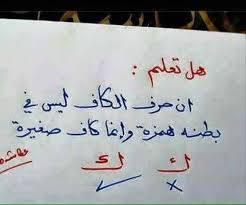 هل تعلم :
ان حرف الكاف ليس في
بطنه همزة وإنما كاف صغيرة
ك ك